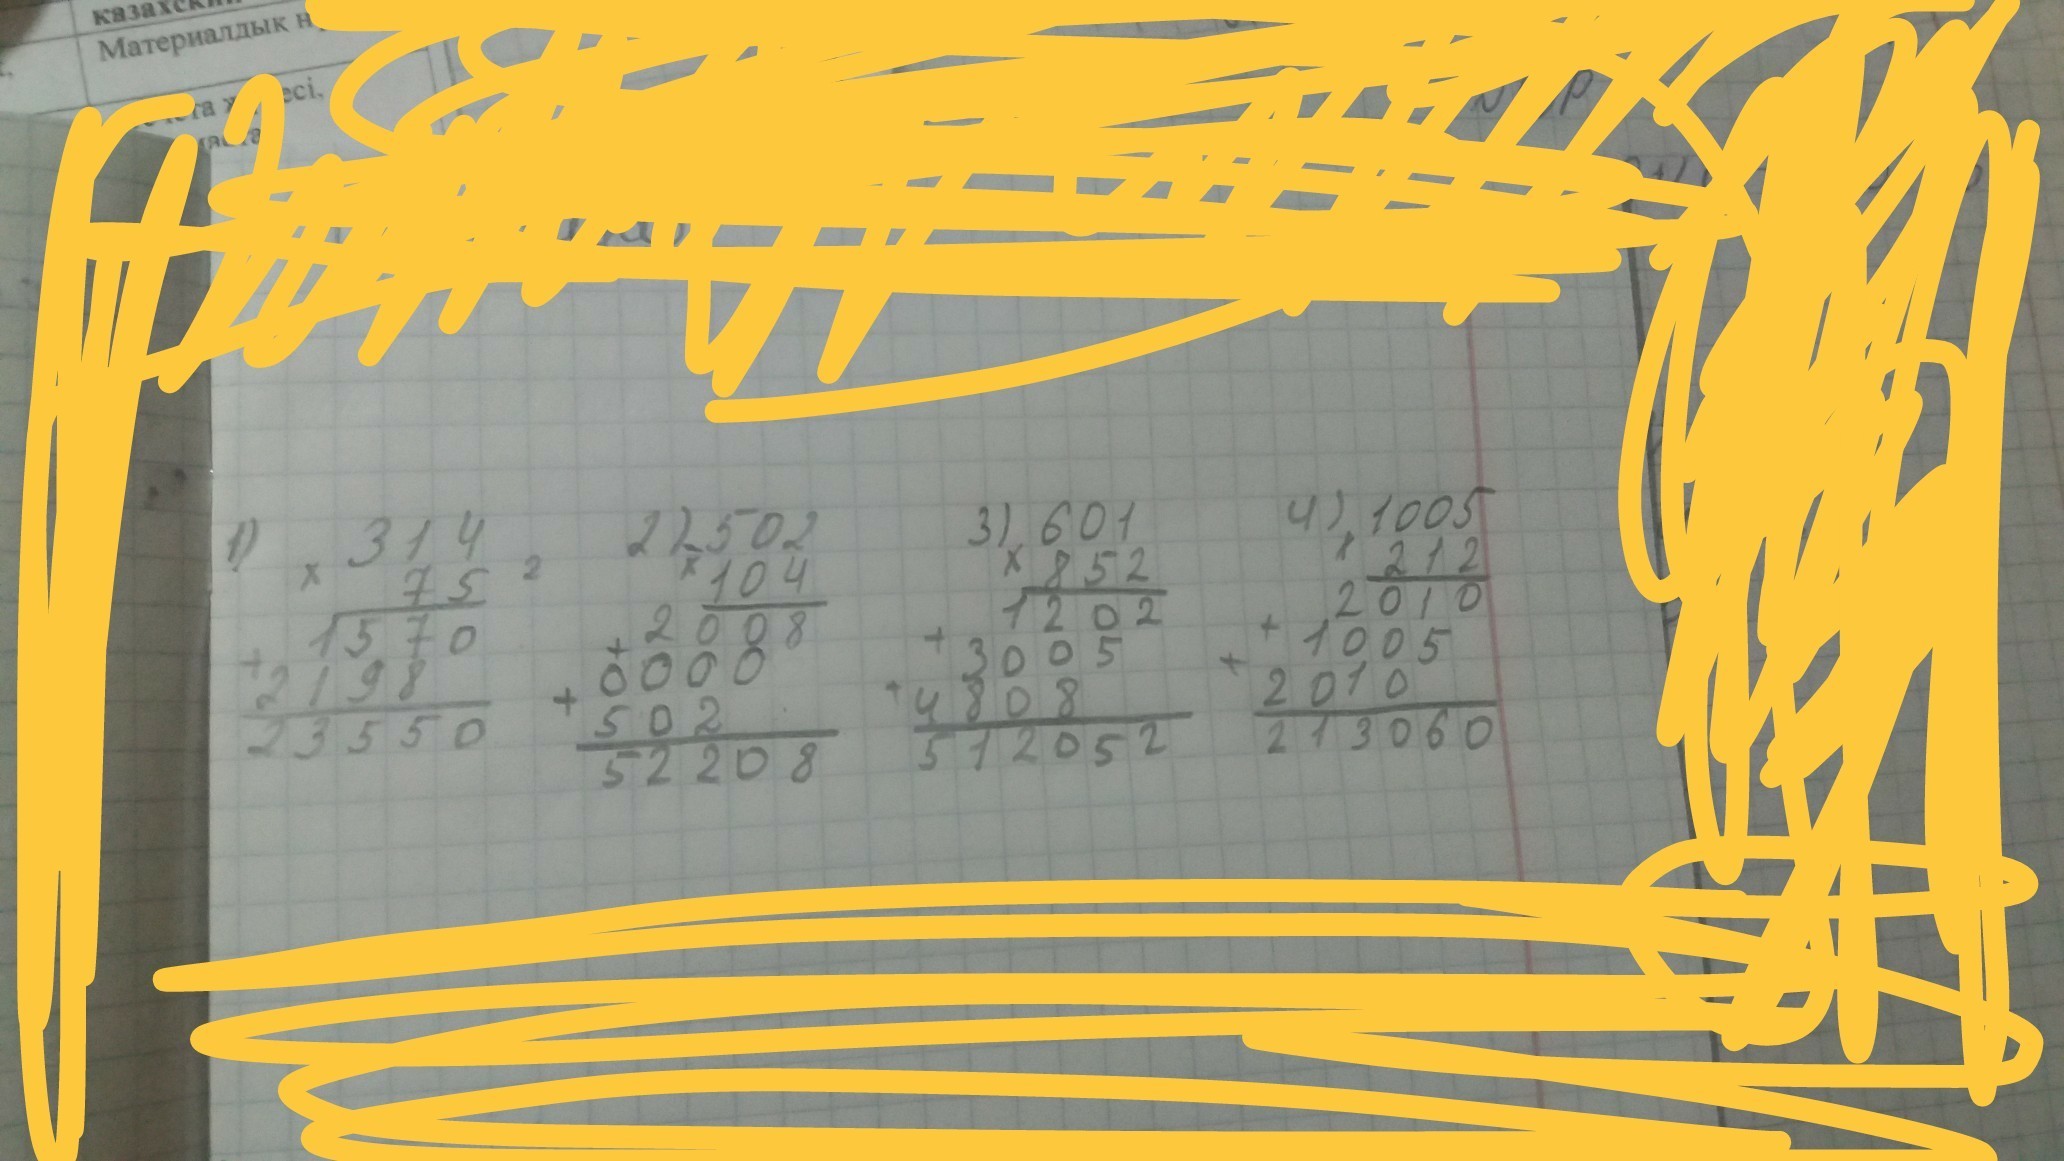 казахский
Материалдық
1) 314
× 75
1570
+ 2198
23550
2) 502
× 104
2008
+ 0000
+ 502
52208
3) 601
× 852
1202
+ 3005
+ 4808
512052
4) 1005
× 212
2010
+ 1005
+ 2010
213060